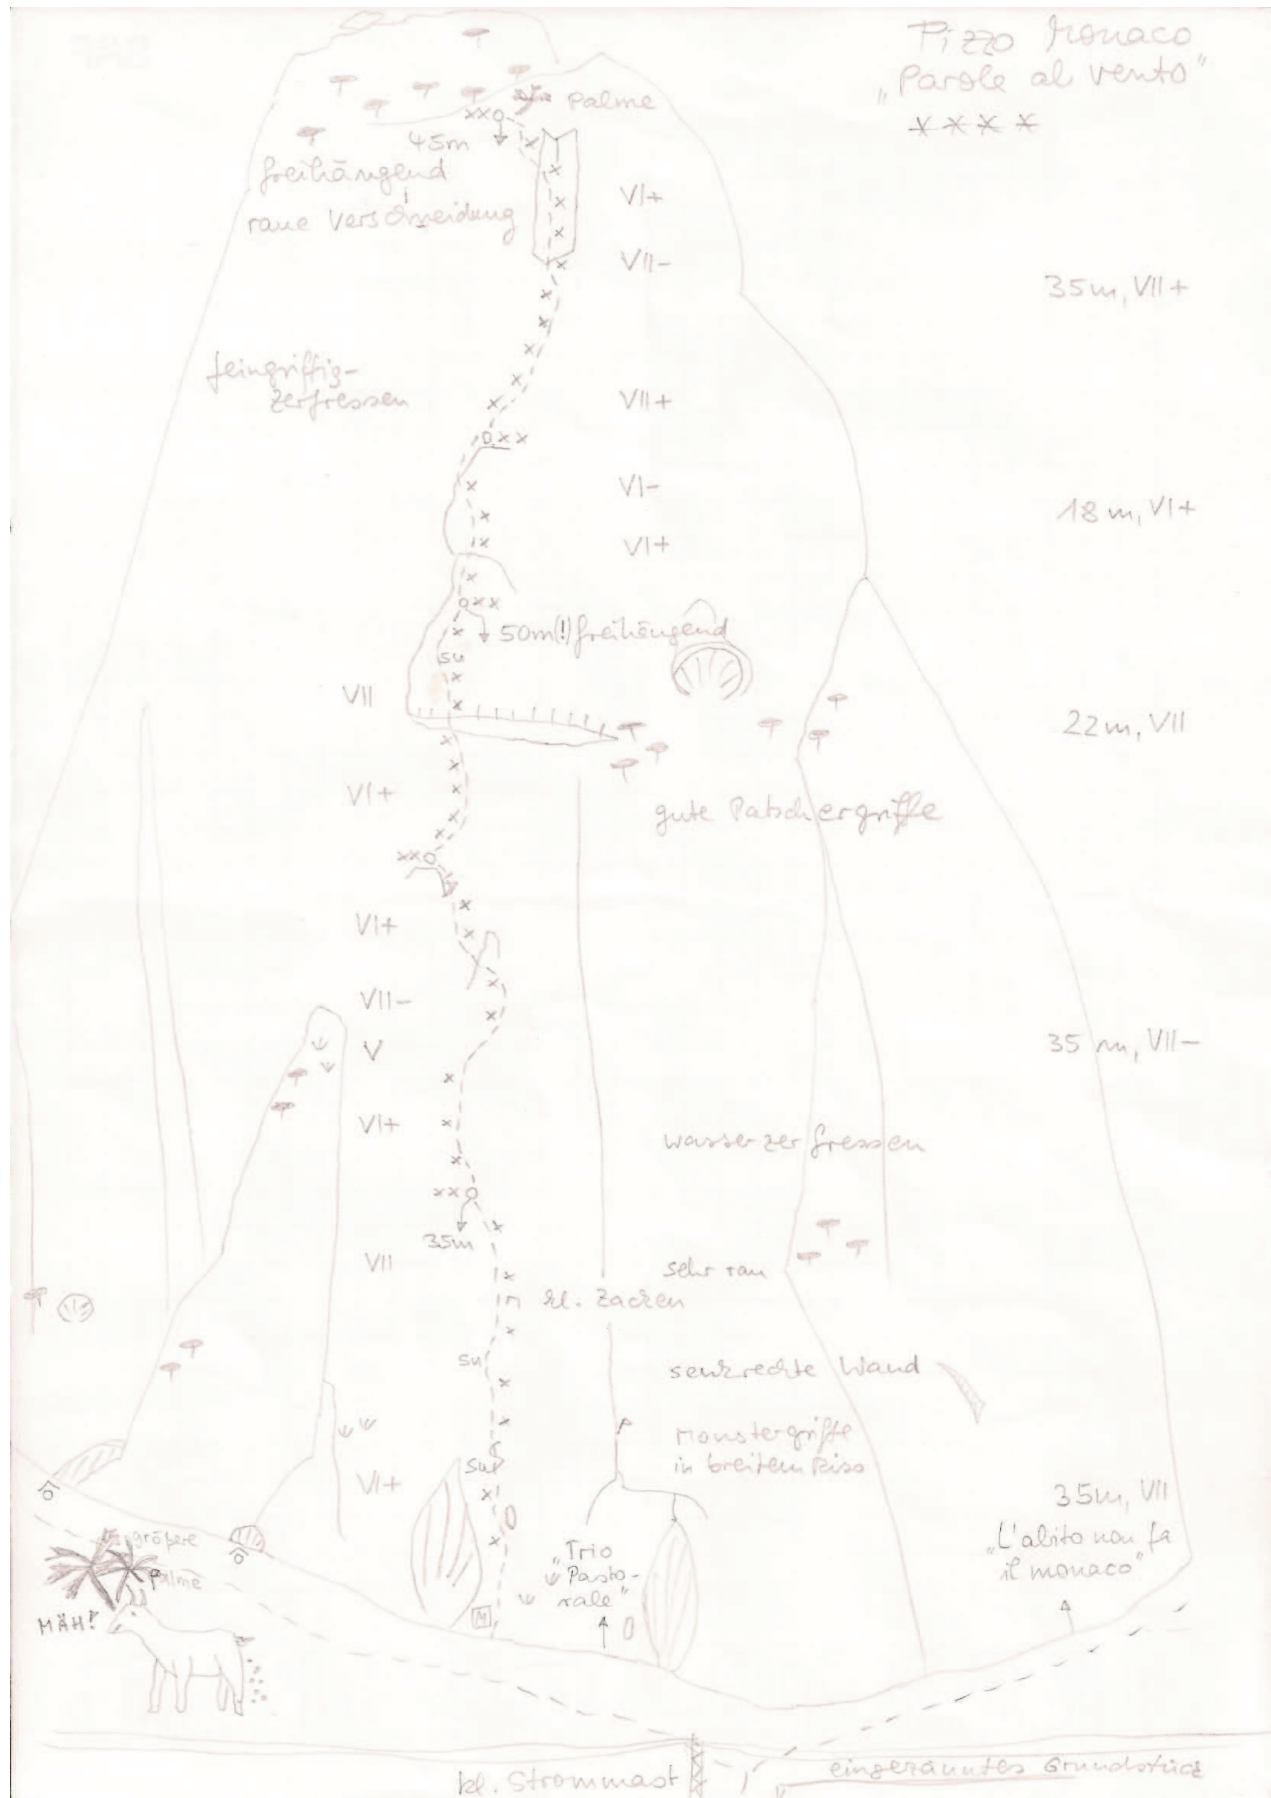 Pizzo Monaco
„Parole al vento"
Palme
45m
freihängend
raue Verschneidung
VI+
VII-
35m, VII+
feingriffig-
zerfressen
VII+
VI-
18m, VI+
VI+
50m(!) freihängend
su
VII
22m, VII
VI+
gute Patschergriffe
VI+
VII-
V
35m, VII-
VI+
wasserzerfressen
35m
VII
sehr rau
kl. Zacken
su
senkrechte Wand
Monstergriffe
in breitem Riss
su
VI+
35m, VII
„L'abito non fa
il monaco"
größere
Palme
„Trio
Pasto-
rale"
MÄH!
M
kl. Strommast
eingezäuntes Grundstück